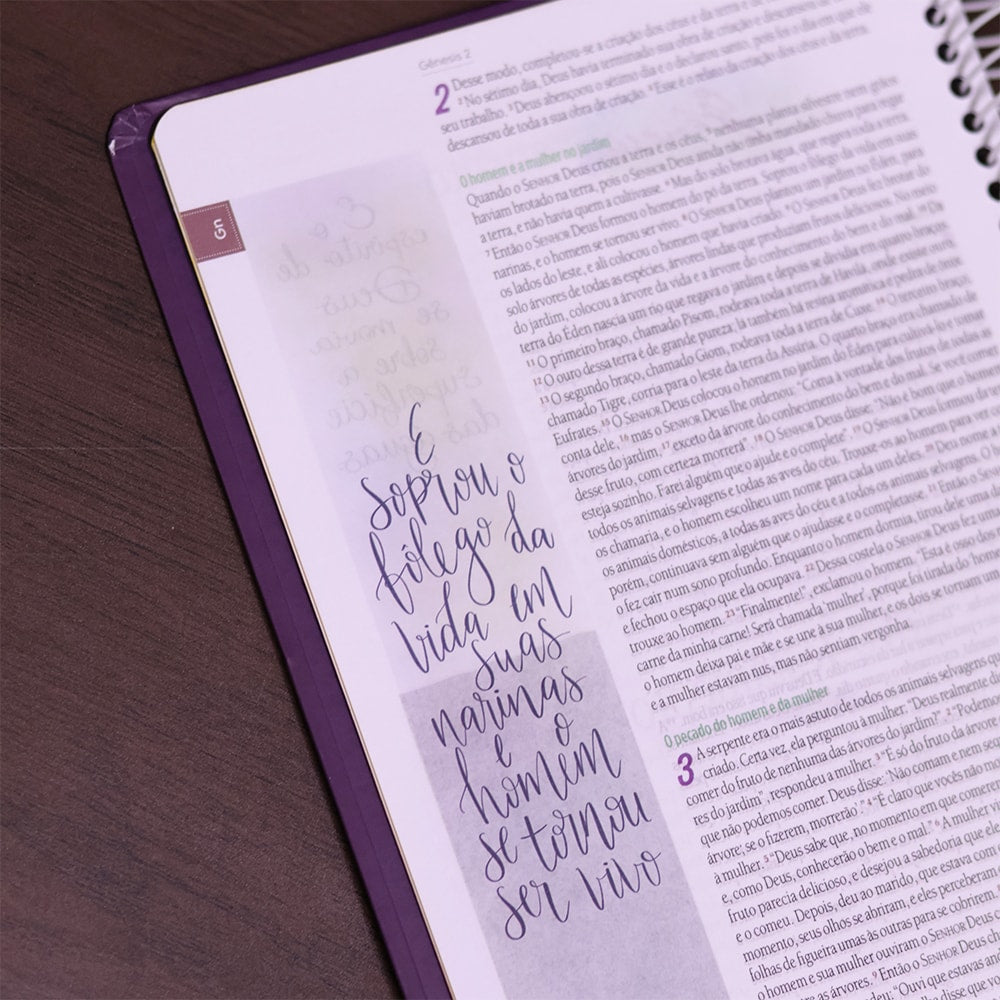 Gênesis 2
Gn
2 Desse modo, completou-se a criação dos céus e da terra e de
2 No sétimo dia, Deus havia terminado sua obra de criação e descansou de
seu trabalho. 3 Deus abençoou o sétimo dia e o declarou santo, pois foi o dia em que
descansou de toda a sua obra de criação. 4 Esse é o relato da criação dos céus e da terra.
O homem e a mulher no jardim
Quando o SENHOR Deus criou a terra e os céus, 5 nenhuma planta silvestre nem grãos
haviam brotado na terra, pois o SENHOR Deus ainda não tinha mandado chuva para regar
a terra, e não havia quem a cultivasse. 6 Mas do solo brotava água, que regava toda a terra.
7 Então o SENHOR Deus formou o homem do pó da terra. Soprou o fôlego da vida em suas
narinas, e o homem se tornou ser vivo. 8 O SENHOR Deus plantou um jardim no Éden, para
os lados do leste, e ali colocou o homem que havia criado. 9 O SENHOR Deus fez brotar do
solo árvores de todas as espécies, árvores lindas que produziam frutos deliciosos. No meio
do jardim, colocou a árvore da vida e a árvore do conhecimento do bem e do mal. 10 Da
terra do Éden nascia um rio que regava o jardim e depois se dividia em quatro
11 O primeiro braço, chamado Pisom, rodeava toda a terra de Havilá, onde
12 O ouro dessa terra é de grande pureza; lá também há resina aromática e pedra de ônix.
13 O segundo braço, chamado Giom, rodeava toda a terra de Cuxe. 14 O terceiro braço,
chamado Tigre, corria para o leste da terra da Assíria. O quarto braço era chamado
Eufrates. 15 O SENHOR Deus colocou o homem no jardim do Éden para cultivá-lo e tomar
conta dele, 16 mas o SENHOR Deus lhe ordenou: “Coma à vontade dos frutos de todas as
árvores do jardim, 17 exceto da árvore do conhecimento do bem e do mal. Se você comer
desse fruto, com certeza morrerá”. 18 O SENHOR Deus disse: “Não é bom que o homem
esteja sozinho. Farei alguém que o ajude e o complete”. 19 O SENHOR Deus formou
todos os animais selvagens e todas as aves do céu. Trouxe-os ao homem para ver
os chamaria, e o homem escolheu um nome para cada um deles. 20 Deu nome a
os animais domésticos, a todas as aves do céu e a todos os animais selvagens. O
porém, continuava sem alguém que o ajudasse e o completasse. 21 Então o SENHOR
o fez cair num sono profundo. Enquanto o homem dormia, tirou dele uma
e fechou o espaço que ela ocupava. 22 Dessa costela o SENHOR Deus fez uma
trouxe ao homem. 23 “Finalmente!”, exclamou o homem. “Esta é osso dos
carne da minha carne! Será chamada ‘mulher’, porque foi tirada do ‘homem
o homem deixa pai e mãe e se une à sua mulher, e os dois se tornam um
e a mulher estavam nus, mas não sentiam vergonha.
O pecado do homem e da mulher
3 A serpente era o mais astuto de todos os animais selvagens
criado. Certa vez, ela perguntou à mulher: “Deus realmente
comer do fruto de nenhuma das árvores do jardim?”. 2 “Podemos
res do jardim”, respondeu a mulher. 3 “É só do fruto da árvore
que não podemos comer. Deus disse: ‘Não comam e nem
árvore; se o fizerem, morrerão’.” 4 “É claro que vocês não
à mulher. 5 “Deus sabe que, no momento em que comerem
e, como Deus, conhecerão o bem e o mal.” 6 A mulher
fruto parecia delicioso, e desejou a sabedoria que ele
e o comeu. Depois, deu ao marido, que estava com
momento, seus olhos se abriram, e eles perceberam
folhas de figueira umas às outras para se cobrirem.
e sua mulher ouviram o SENHOR Deus
tre as árvores. 9 Então o SENHOR Deus
deu: “Ouvi que estavas
disse que
E
soprou o
fôlego da
vida em
suas
narinas
e o
homem
se tornou
ser vivo